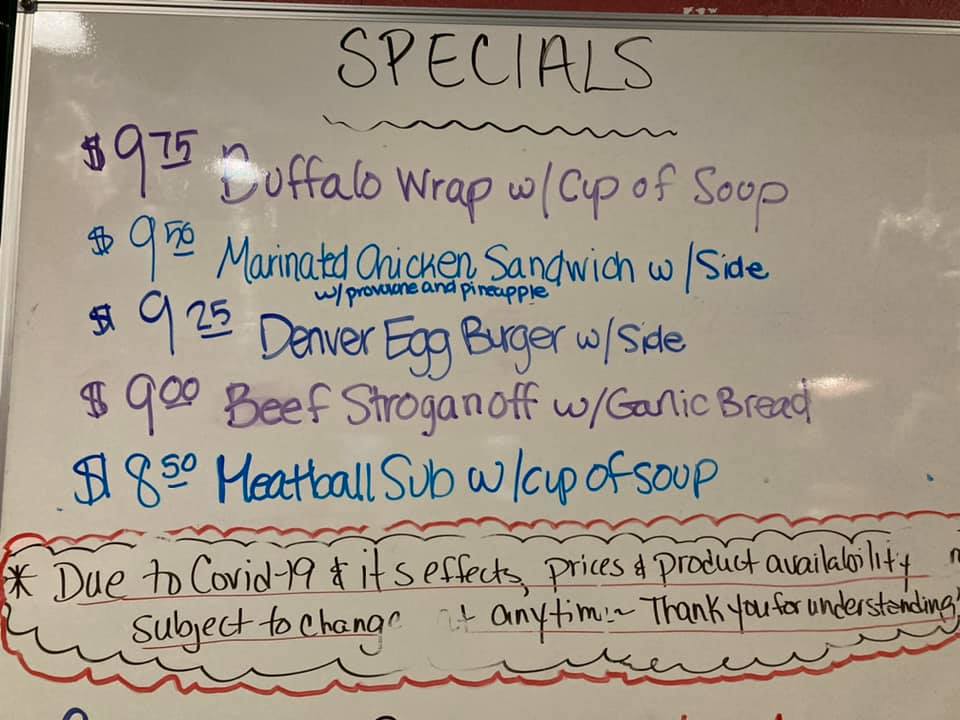 SPECIALS
$9.75 Buffalo Wrap w/Cup of Soup
$9.50 Marinated Chicken Sandwich w/Side
w/provolone and pineapple
$9.25 Denver Egg Burger w/Side
$9.00 Beef Stroganoff w/Garlic Bread
$8.50 Meatball Sub w/cup of soup
* Due to Covid-19 & its effects, prices & product availability
subject to change at anytime~ Thank you for understanding